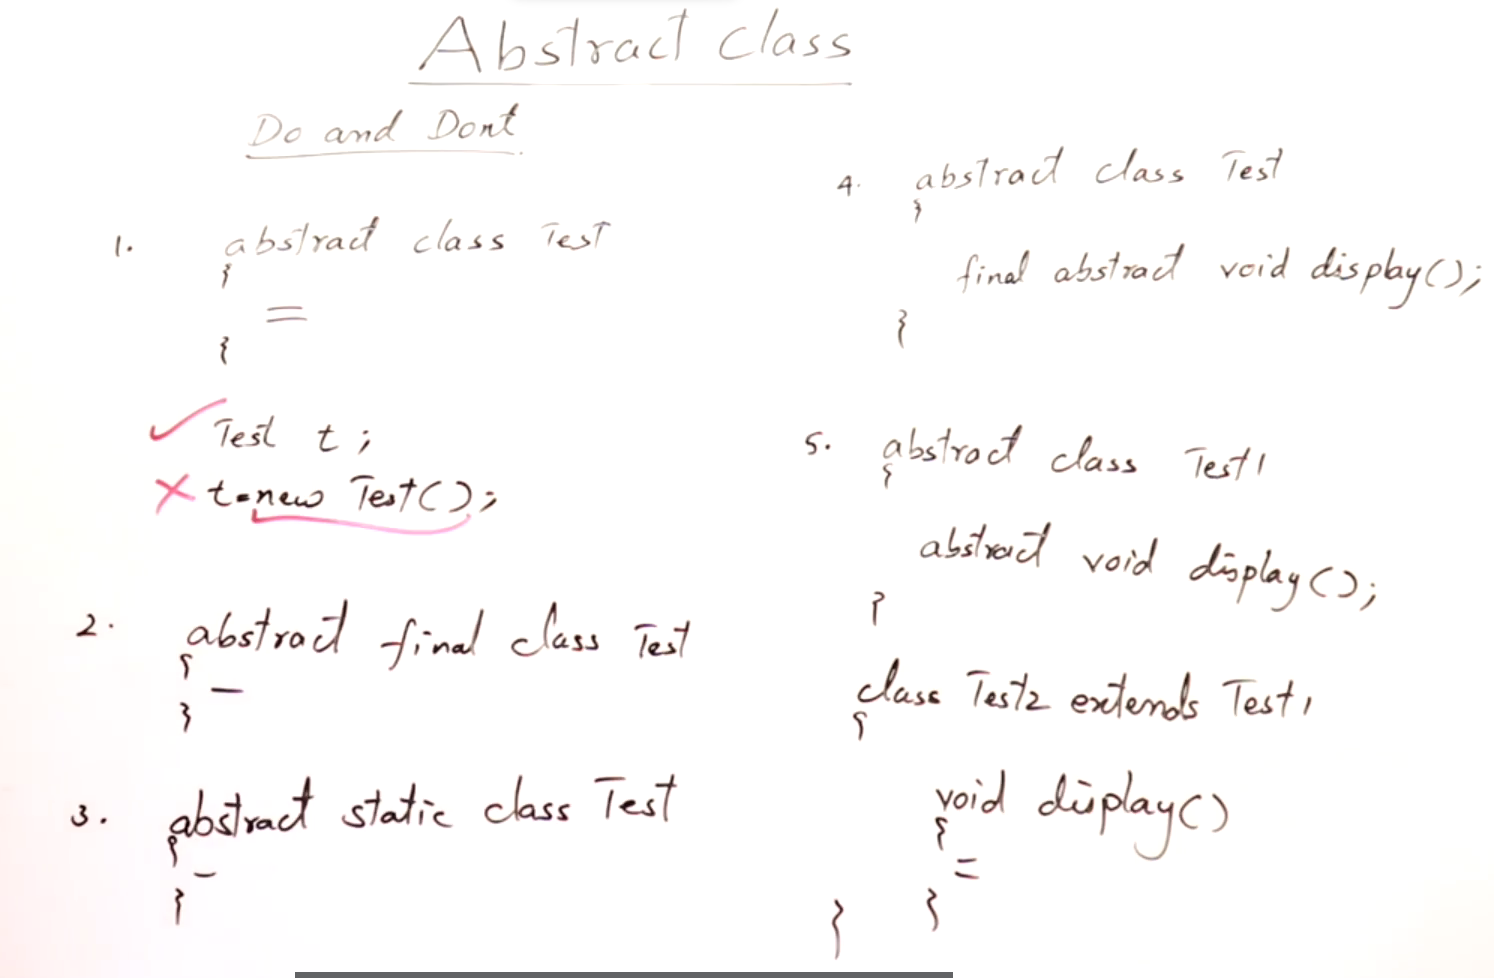 Abstract class
Do and Dont
1. abstract class Test
{
=
}
✓ Test t;
✗ t=new Test();
2. abstract final class Test
{
–
}
3. abstract static class Test
{
–
}
4. abstract class Test
{
final abstract void display();
}
5. abstract class Test1
{
abstract void display();
}
class Test2 extends Test1
{
void display()
{
=
}
}